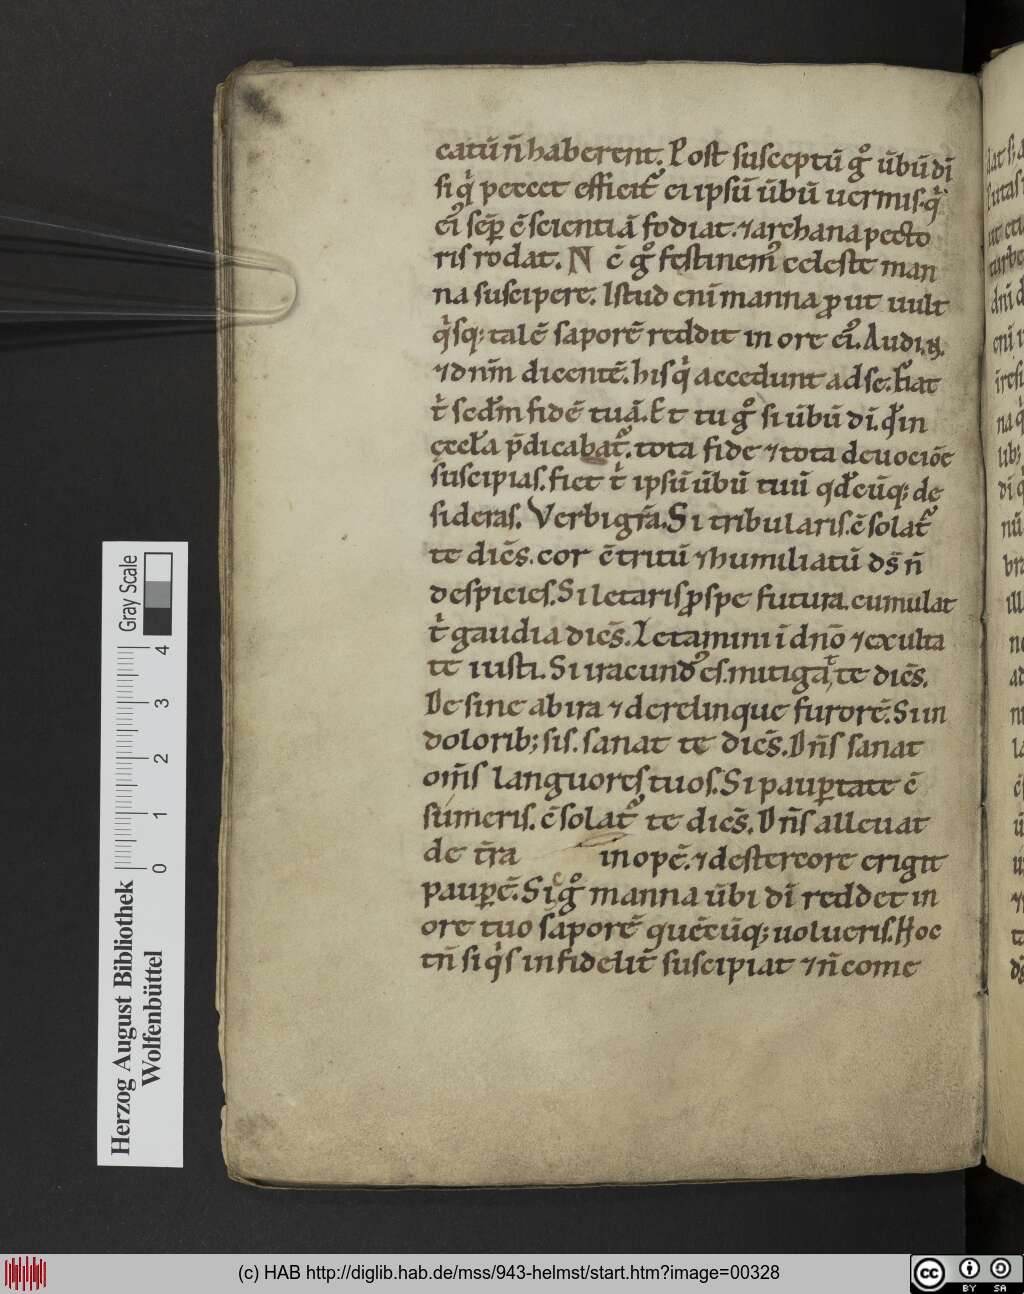 catū n̄ haberent. Post susceptū gͦ ūbū dī
si qͥ peccet efficit᷑ ei ipsū ūbū uermis. qͥ
eiꝰ sēp ꝯscientiā fodiat. ⁊ archana pecto
ris rodat. N ē gͦ festinemꝰ celeste man
na suscipere. Istud eni manna ꝓut uult
qͥsq; talē saporē reddit in ore eiꝰ. Audi. g̅.
⁊ dn̄m dicentē. his qͥ accedunt ad se. Fiat
tͥ scdm̄ fidē tuā. Et tu gͦ si ūbū dī. qđ in
ęccła p̄dicabat᷑. tota fide ⁊ tota deuociōe
suscipias. fiet tͥ ipsū ūbū tuū qđcūq; de
sideras. Verbi gr̄a. Si tribularis. ꝯsolat᷑
te dicēs. cor ꝯtritū ⁊ humiliatū ds̄ n̄
despicies. Si letaris ꝓ spe futura. cumulat
tͥ gaudia dicēs. Letamini ī dnō ⁊ exulta
te iusti. Si iracundꝰ es. mitigat te dicēs.
Desine ab ira ⁊ derelinque furorē. Si in
dolorib; sis. sanat te dicēs. Dn̄s sanat
om̄s languores tuos. Si paup̱tate ꝯ
sumeris. ꝯsolat᷑ te dicēs. Dn̄s alleuat
de t̄ra inopē. ⁊ de stercore erigit
paup̱ē. Sic gͦ manna ūbi dī reddet in
ore tuo saporē quēcūq; uolueris. Hoc
tn̄ si qͥs infidelit̄ suscipiat ⁊ n̄ come
Gray Scale
0 1 2 3 4
Herzog August Bibliothek
Wolfenbüttel
(c) HAB http://diglib.hab.de/mss/943-helmst/start.htm?image=00328
cc BY SA